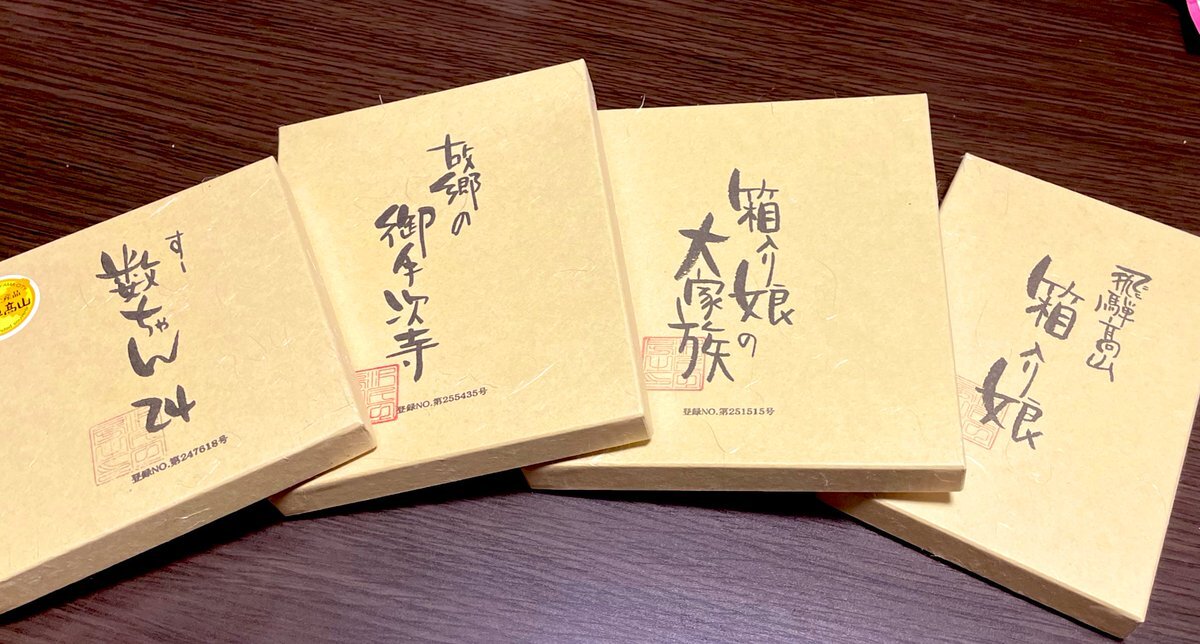 すー
数ちゃん
24
登録NO.第247618号
故郷の
御手次寺
登録NO.第255435号
箱入り娘の
大家族
登録NO.第251515号
飛騨高山
箱入り娘